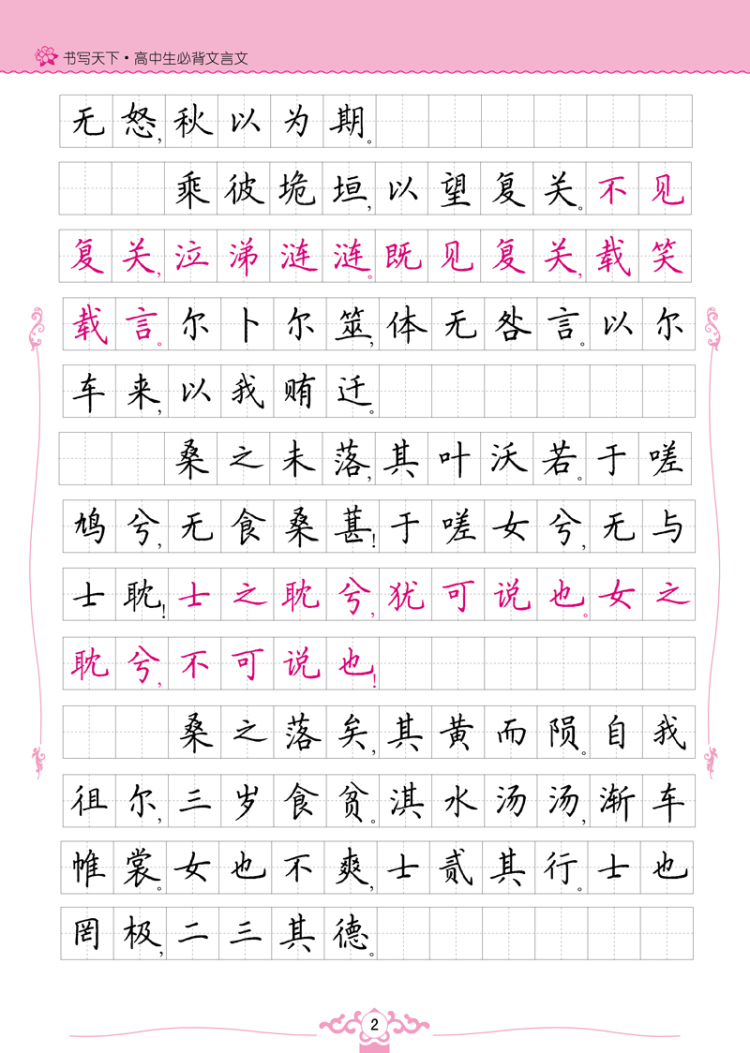 书写天下·高中生必背文言文
无怒,秋以为期。
乘彼垝垣,以望复关。不见
复关,泣涕涟涟。既见复关,载笑
载言。尔卜尔筮,体无咎言。以尔
车来,以我贿迁。
桑之未落,其叶沃若。于嗟
鸠兮,无食桑葚!于嗟女兮,无与
士耽!士之耽兮,犹可说也。女之
耽兮,不可说也!
桑之落矣,其黄而陨。自我
徂尔,三岁食贫。淇水汤汤,渐车
帷裳。女也不爽,士贰其行。士也
罔极,二三其德。
2